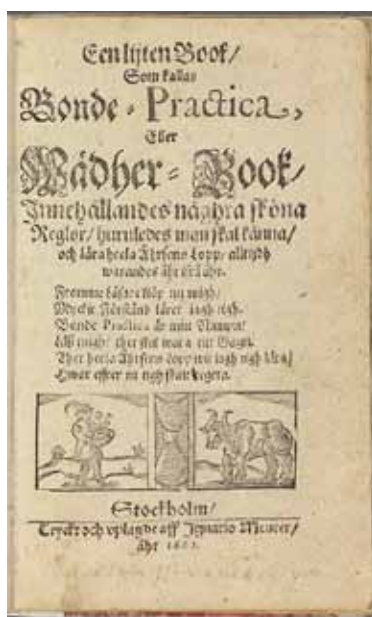 Een lijten Book/
Som kallas
Bonde-Practica,
Eller
Wädher-Book/
Innehållandes någhra sköna
Reglor/ huruledes man skal känna/
och lära heela Åhrsens lopp/ alltijdh
warandes åhr ifrå åhr.
Fromme Läsare köp nu migh/
Mycket Förstånd lärer iagh tigh.
Bonde Practica är mitt Nampn/
Läs migh/ thet skal wara titt Gagn.
Åhrsens lopp wil iagh tigh lära/
Hwar effter tu tigh skalt regera.
Stockholm/
Tryckt och uplagde aff Ignatio Meurer/
åhr